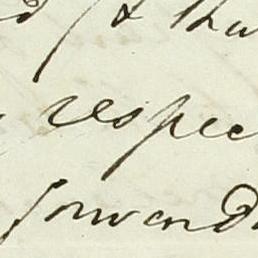 & tha
respec
forward